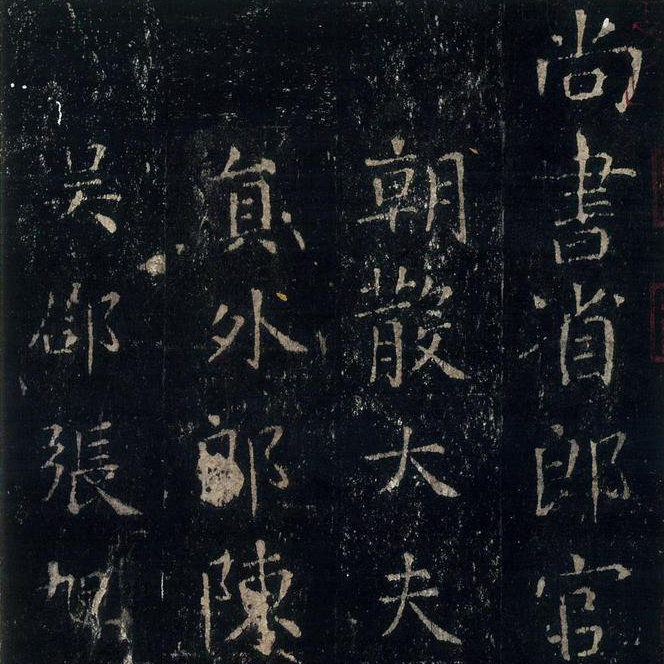 尚書省郎官
朝散大夫
貟外郎陳
吳郡張旭